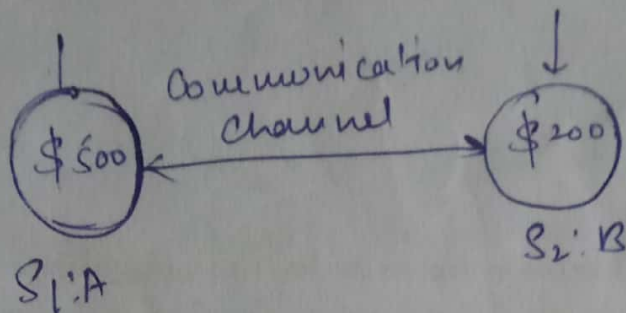 Communication
Channel
$500
$200
S1:A
S2:B